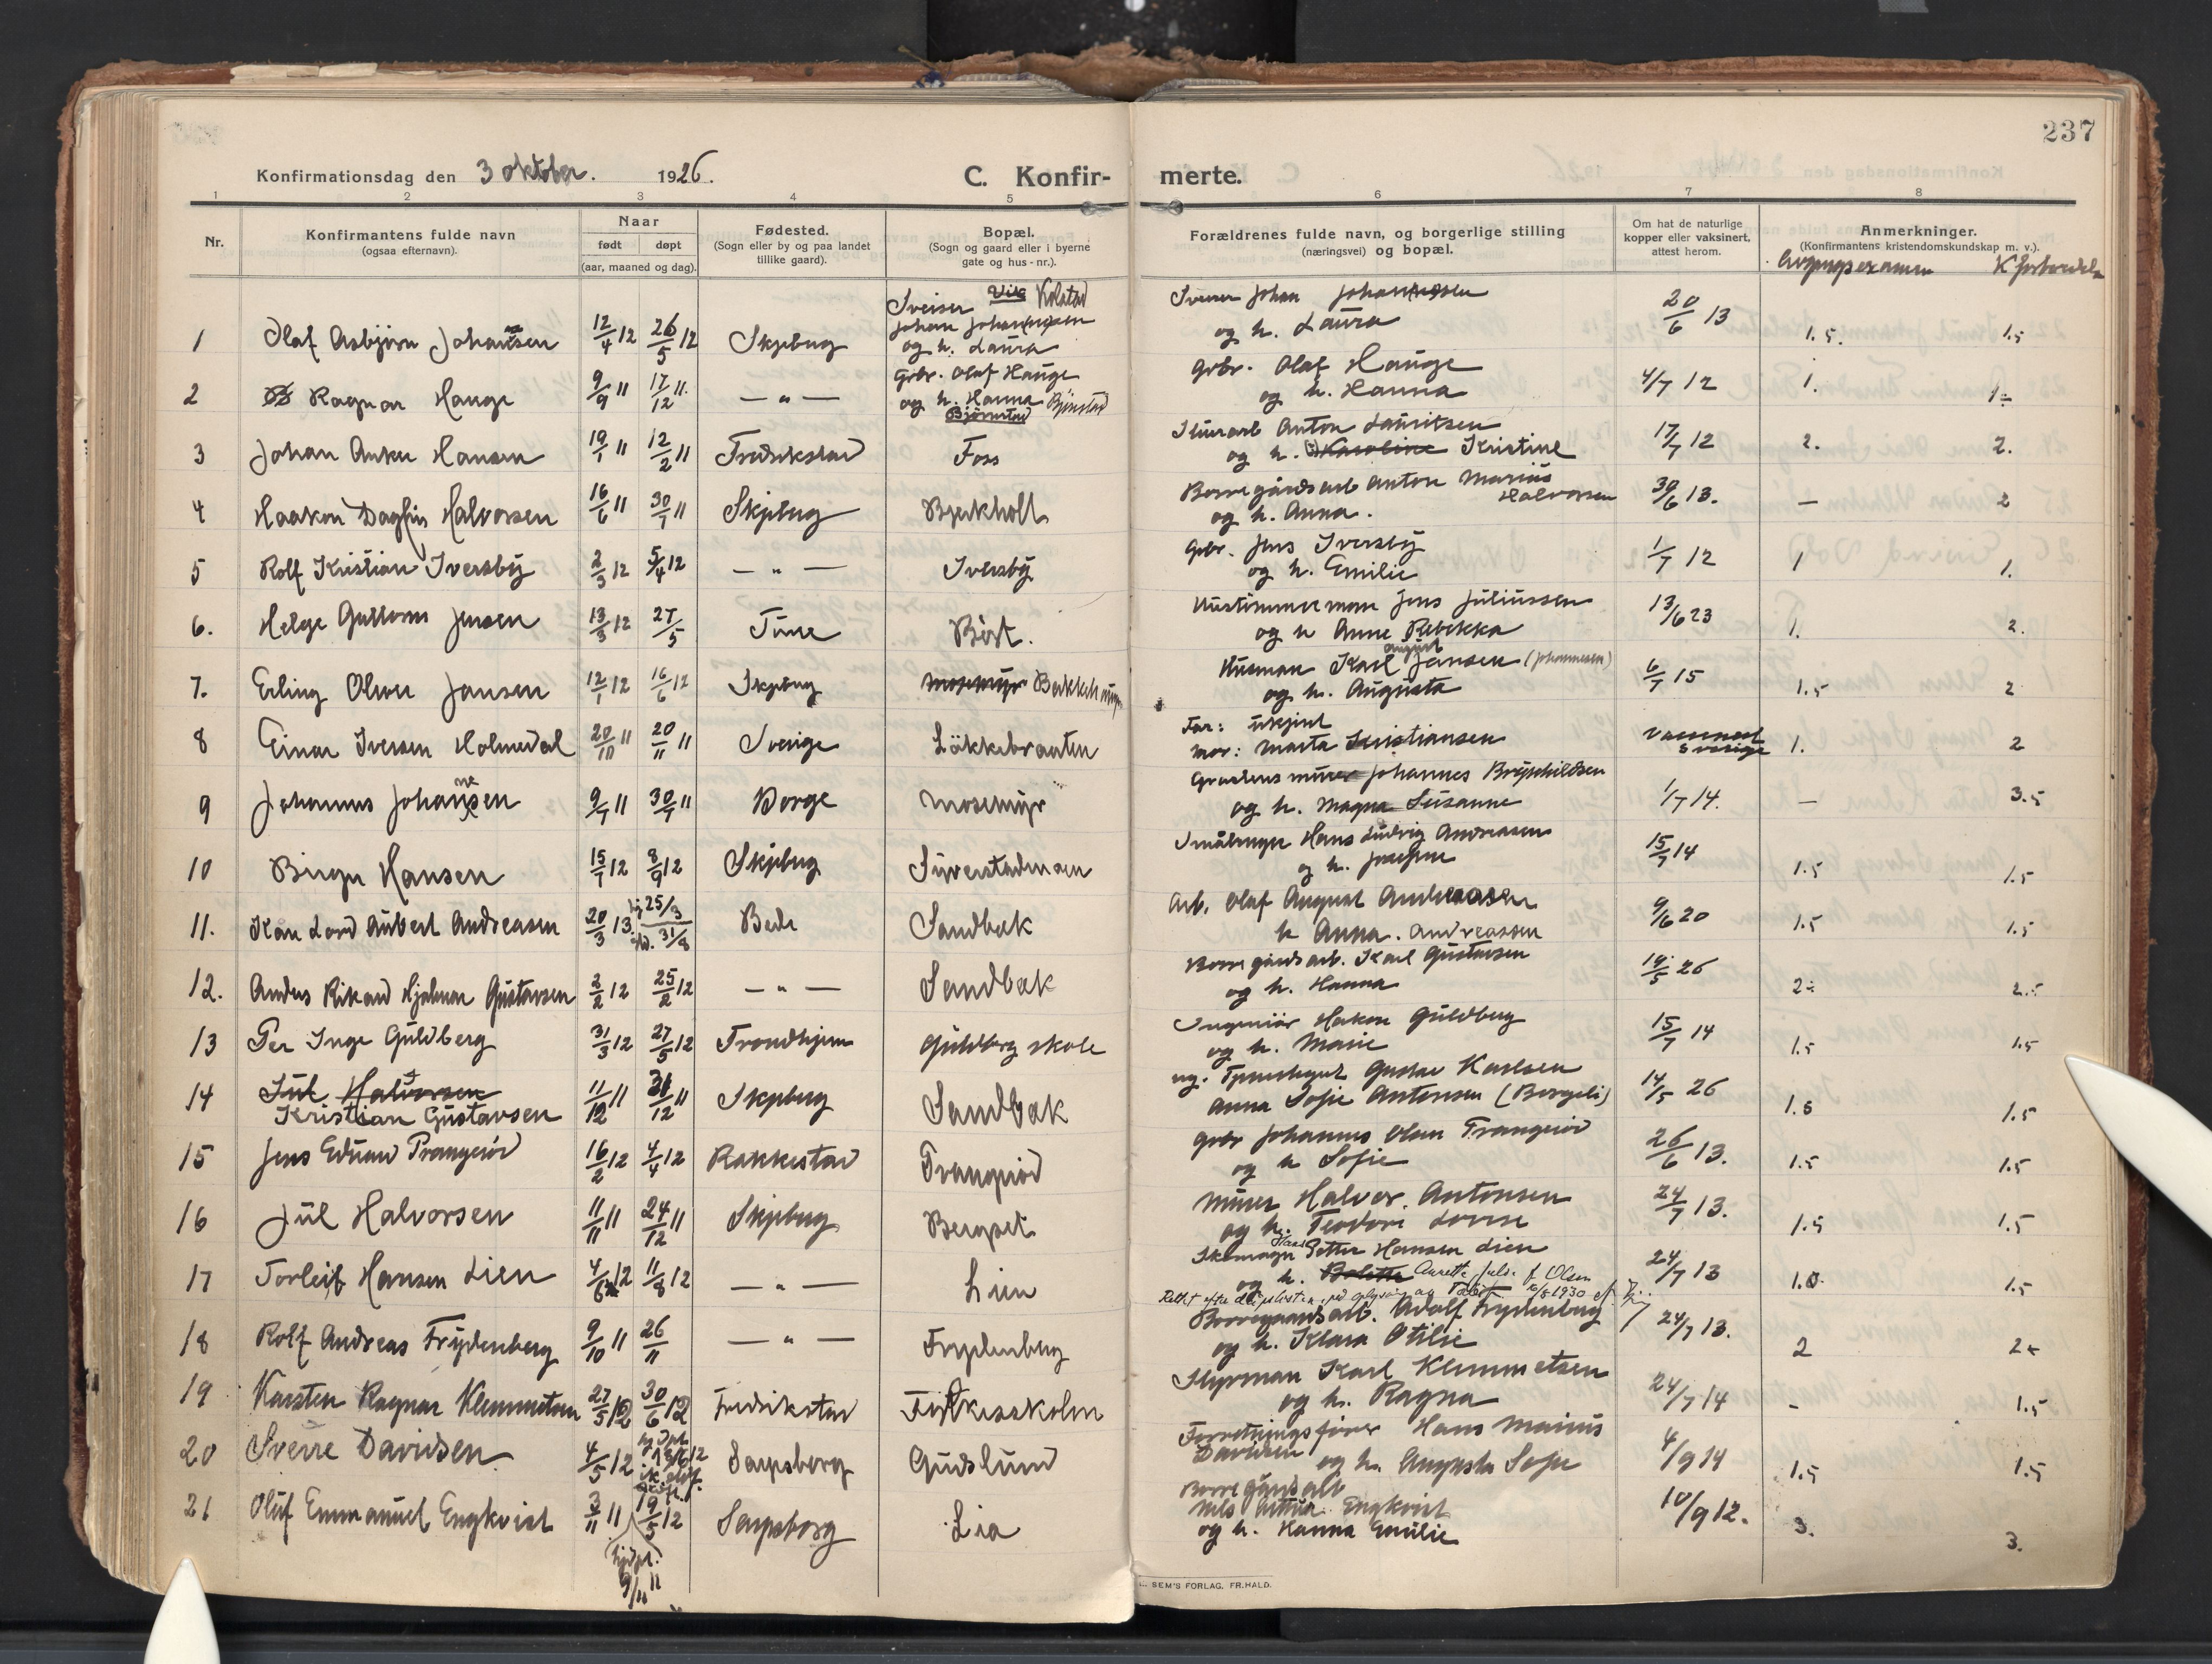 237
Konfirmationsdag den 3 oktober. 1926.
C. Konfir-
merte.
1 2 3 4 5 6 7 8
Nr.
Konfirmantens fulde navn
(ogsaa efternavn).
Naar
født døpt
(aar, maaned og dag).
Fødested.
(Sogn eller by og paa landet
tillike gaard).
Bopæl.
(Sogn og gaard eller i byerne
gate og hus-nr.).
Forældrenes fulde navn, og borgerlige stilling
(næringsvei) og bopæl.
Om hat de naturlige
kopper eller vaksinert,
attest herom.
Anmerkninger.
(Konfirmantens kristendomskundskap m. v.).
Avgangsexamen
1 Olaf Asbjørn Johansen 12/4 12 26/5 12 Skjeberg
Sveiser Vik Kolstad
Johan Johannesen
og h. Laura
Sveiser Johan Johannesen
og h. Laura
20/6 13 1.5. 1.5
2 Ragnar Hauge 9/9 11 17/12 11. — " —
Grbr. Olaf Hauge
og h. Hanna Bjørnstad
Bjørnstad
Grbr. Olaf Hauge
og h. Hanna
4/7 12 1. 1-
3 Johan Anker Hansen 19/1 11 12/2 11 Fredrikstad Foss
Anton Lauritsen
og h. Karoline Kristine
17/7 12 2. 2.
4 Haakon Dagfin Halvorsen 16/6 11 30/7 11 Skjeberg Bjerkholt
Borregårdsarb Anton Marius
Halvorsen
og h. Anna.
30/6 13. — 2
5 Rolf Kristian Iversby 2/3 12 5/4 12 — " — Iversby
Grbr. Jens Iversby
og h. Emilie
1/7 12 1 1.
6. Helge Guttorm Jensen 13/3 12 27/5 Tune Böst.
Hustømmerman Jens Juliussen
og h Anne Rebekka
13/6 23 1. 2.
7. Erling Oliver Jansen 12/1 12 16/6 12 Skjeberg Mosemyr Bakkehaugen
August
Husman Karl Jansen (Johannesen)
og h. Augusta
6/7 15 1.5 2
8 Einar Iversen Holmedal 20/10 11 20/11 11 Sverige Løkkebraaten
Far: ukjent
Mor: Marta Kristiansen
Sverige 1. 2
9 Johannes Johansen 9/7 11 30/7 11 Borge Mosemyr
ne
Johannes Brynhildsen
og h. Magna Susanne
1/7 14. — 3.5
10 Birger Hansen 15/7 12 8/9 12 Skjeberg Syverstadmoen
Småbruger Hans Ludvig Andreasen
og h. Josefine
15/7 14 1.5 1.5
11. Kåre Lord Aubert Andreasen 20/3 13 25/3 31/8 Berlin Sandbæk
Arb. Olaf August Andreassen
h Anna. Andreassen
9/6 20 1.5 1.5
12. Anders Rikard Hjalmar Gustavsen 2/2 12 25/2 12 — " — Sandbæk
Borregårdsarb. Karl Gustavsen
og h. Hanna
19/5 26 2- 2.5
13 Per Inge Guldberg 31/3 12 27/5 12 Trondhjem Guldberg skole
Ingeniør Hakon Guldberg
og h. Marie
15/7 14 1.5 1.5
14 Jul Halvorsen
Kristian Gustavsen 11/12 11 31/12 11 Skjeberg Sandbæk
ug. Tjenestegut Gustav Karlsen
Anna Sofie Antonsen (Borgeli)
14/5 26 1.5 1.5
15 Jens Edvard Trangerød 16/2 12 4/4 12 Rakkestad Trangerød
Grbr Johannes Olsen Trangerød
og h Sofie
26/6 13. 1.5 1.5
16 Jul Halvorsen 11/11 11 24/12 11 Skjeberg Berget
Murer Halvor Antonsen
og h. Teodora Lovise
24/7 13. 1.5 1.5
17 Torleif Hansen Lien 4/6 12 11/8 12 — " — Lien
Hans
Skomager Petter Hansen Lien
og h. Bolette Annette f. Olsen
24/7 13 1.0. 1.5
18 Rolf Andreas Frydenberg 9/10 11 26/11 — " — Frydenberg
Borregaardsarb. Adolf Frydenberg
og h. Klara Otilie
24/7 13. 2 2-
19 Karsten Ragnar Klemmetsen 27/5 12 30/6 12 Fredrikstad
Styrman Karl Klemmetsen
og h. Ragna
24/7 14 - 1.5
20 Sverre Davidsen 4/5 12 Sarpsborg Gudslund
Forretningsfører Hans Marius
Davidsen og h. Augusta Sofie
4/9 14 1.5 1.5
21 Oluf Emmanuel Engkvist 3/11 11 19/5 12 Sarpsborg Lia
hjdpt.
9/11 11
Borregårdsarb
Nils Arthur Engkvist
og h. Hanna Emilie
10/9 12. 3. 3.
SEM'S FORLAG, FR.HALD.